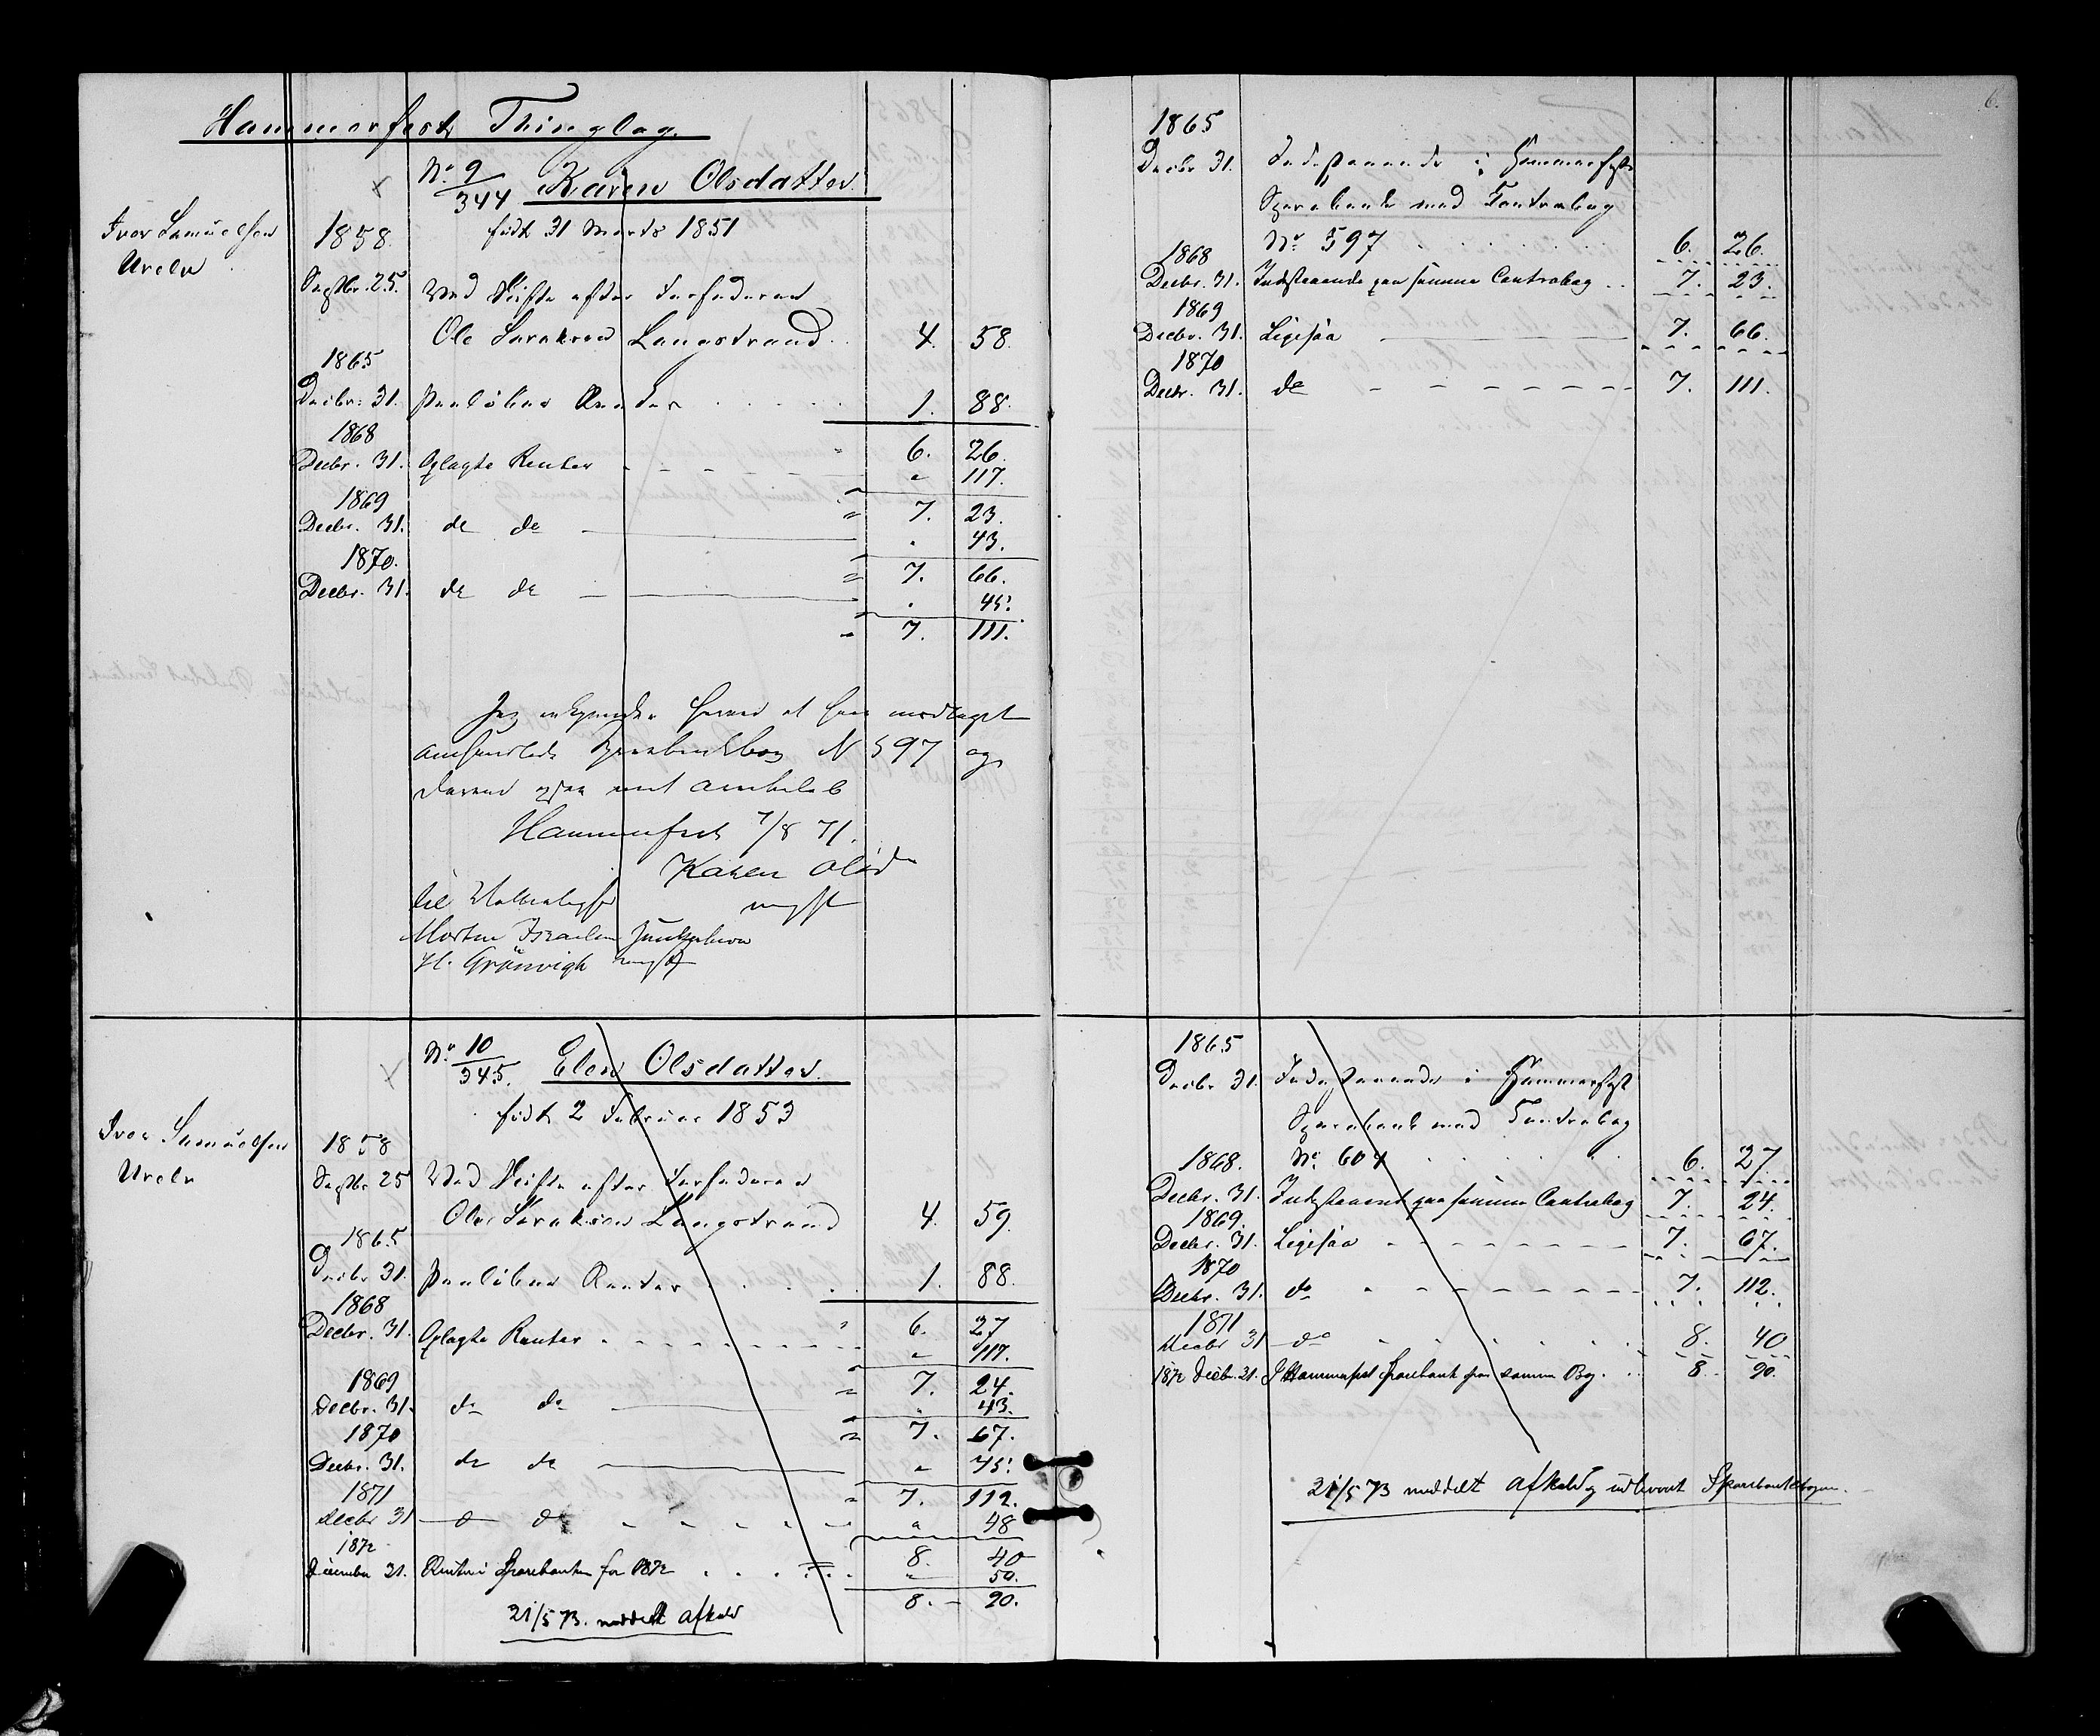 Hammerfest Thinglag.
No. 9/344 Karen Olsdatter.
født 31 Marts 1851
Iver Samuelsen
1858
Septbr. 25. Ved Skifte efter Forfaderen
Ole Larsen Langstrand 4. 58.
1865
Decbr. 31. paaløbne Renter 1. 88.
6. 26.
1868
Decbr. 31. Oplagte Renter " 117.
7. 23.
1869
Decbr. 31. do do 43.
7. 66.
1870.
Decbr. 31. do do 45.
7. 111.
Jeg erkjender herved at have modtaget
anhandlede Sparebankbog N 597 og
derved ogsaa mit Arvebeløb
Hammerfest 7/8 71.
Karen Olsd
til Vitterlighed
Morten Israelsen
H. Grönvigh
No. 10/345. Elen Olsdatter.
født 2 Februar 1853
Iver Samuelsen
1858
Septbr 25 Ved Skifte efter Forfaderen
Ole Larsen Langstrand 4. 59.
1865
Decbr 31. paaløbne Renter 1. 88.
6. 27
1868
Decbr. 31. Oplagte Renter " 117.
7. 24.
1869
Decbr. 31. do do 43.
7. 67.
1870
Decbr. 31. do do " 45.
7. 112.
1871
Decbr 31 do do " 48
8. 40
1872
December 31. Renter i Sparebanken for 1872 50.
8. 90.
21/5 73. meddelt Afkald
6.
1865
Decbr 31. Indestaaende i Hammerfest
Sparebank med Contrabog
No 597 6. 26.
1868
Decbr. 31. Indestaaende paa samme Contrabog 7. 23.
1869
Decbr. 31. Ligesaa 7. 66.
1870
Decbr. 31. do 7. 111.
1865
Decbr 31. Indestaaende i Hammerfest
Sparebank med Contrabog
No. 604 6. 27.
1868.
Decbr. 31. Indestaaende paa samme Contrabog 7. 24.
1869.
Decbr. 31. Ligesaa 7. 67.
1870
Decbr. 31. do 7. 112.
1871
Decbr 31 do 8. 40
1872 Decbr. 31. I Hammerfest Sparebank paa samme Bog. 8. 90.
21/5 73 meddelt Afkald og udleveret Sparebankbogen.